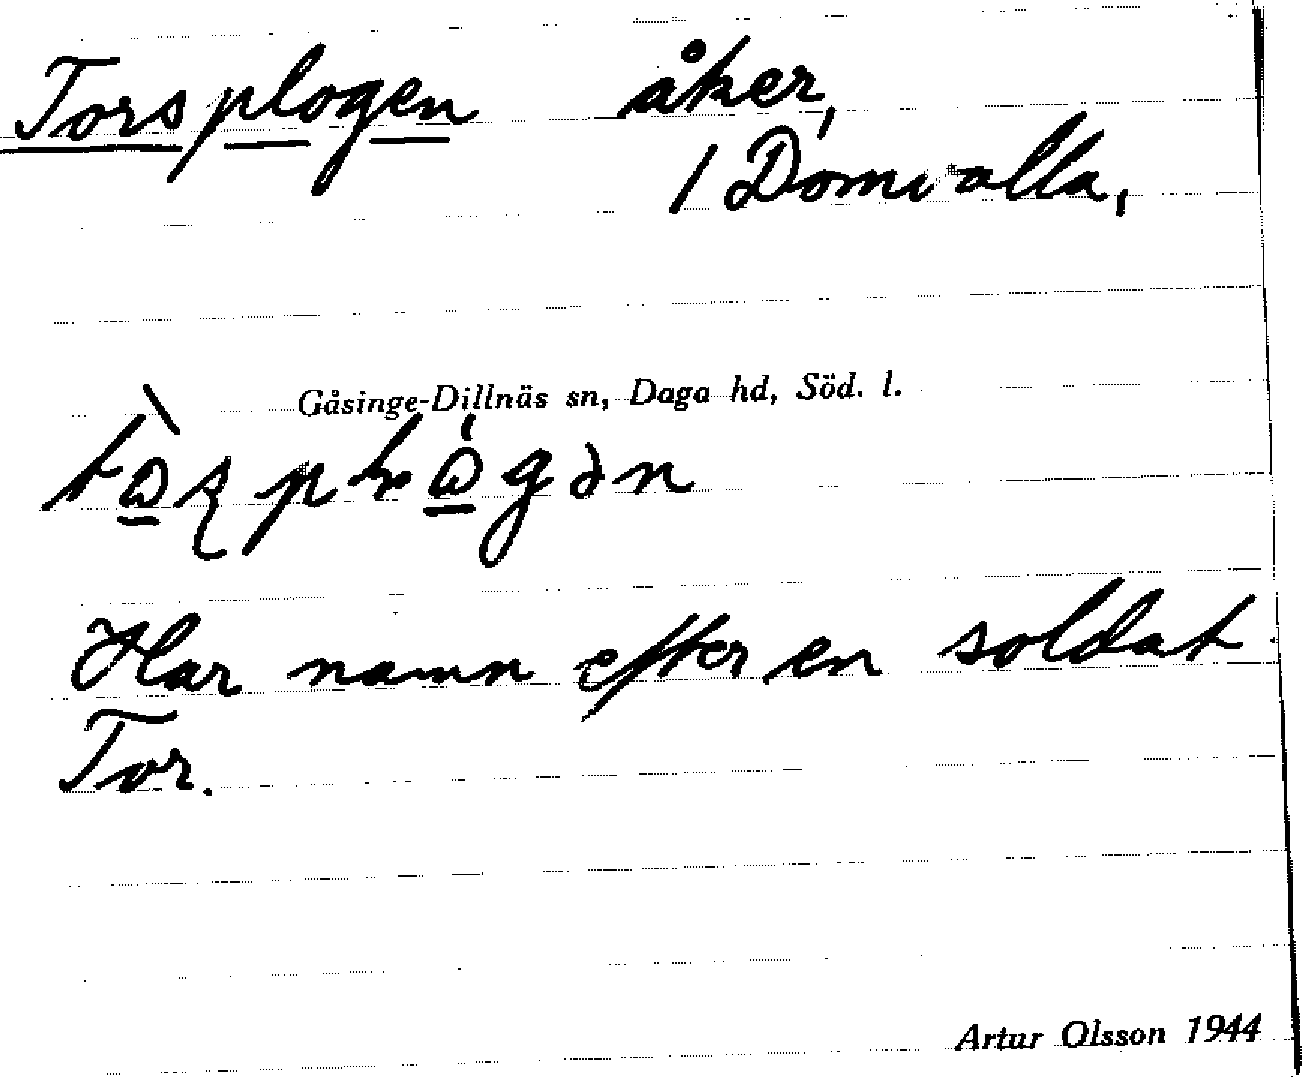 Torsplogen åker,
/ Domvalla,
Gåsinge-Dillnäs sn, Daga hd, Söd. l.
Har namn efter en soldat
Tor.
Artur Olsson 1944